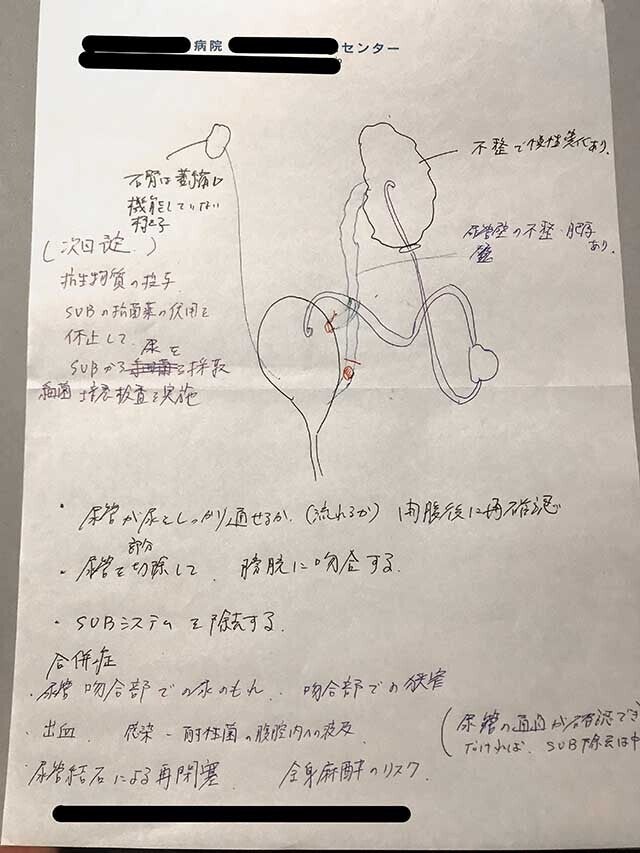 病院 センター
不整で慢性変化あり、
右腎は萎縮し
機能をしていない
様子
尿管壁の不整・肥厚
あり、
(次回迄)
抗生物質の投与
SUBの抗菌薬の使用を
休止して、
尿を
SUBから採取
細菌培養検査を実施
・尿管が尿をしっかり通せるか、(流れるか) 開腹後に再確認
部分
・尿管を切除して、膀胱に吻合する。
・SUBシステムを除去する。
合併症
・尿管吻合部での尿のもれ、吻合部での狭窄
・出血、感染-耐性菌の腹腔内への波及
(尿管の通過が確認でき
なければ、SUB除去は中
尿管結石による再閉塞 全身麻酔のリスク、